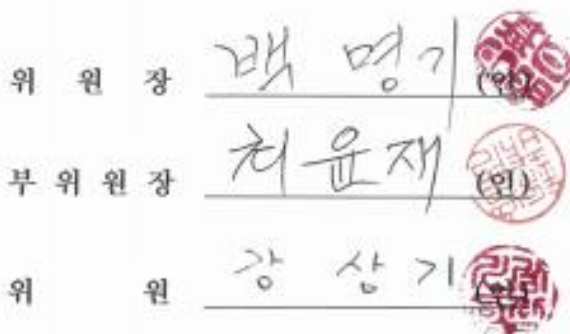 위 원 장 백 명기 (인)
부 위 원 장 최윤재 (인)
위 원 강 상기 (인)